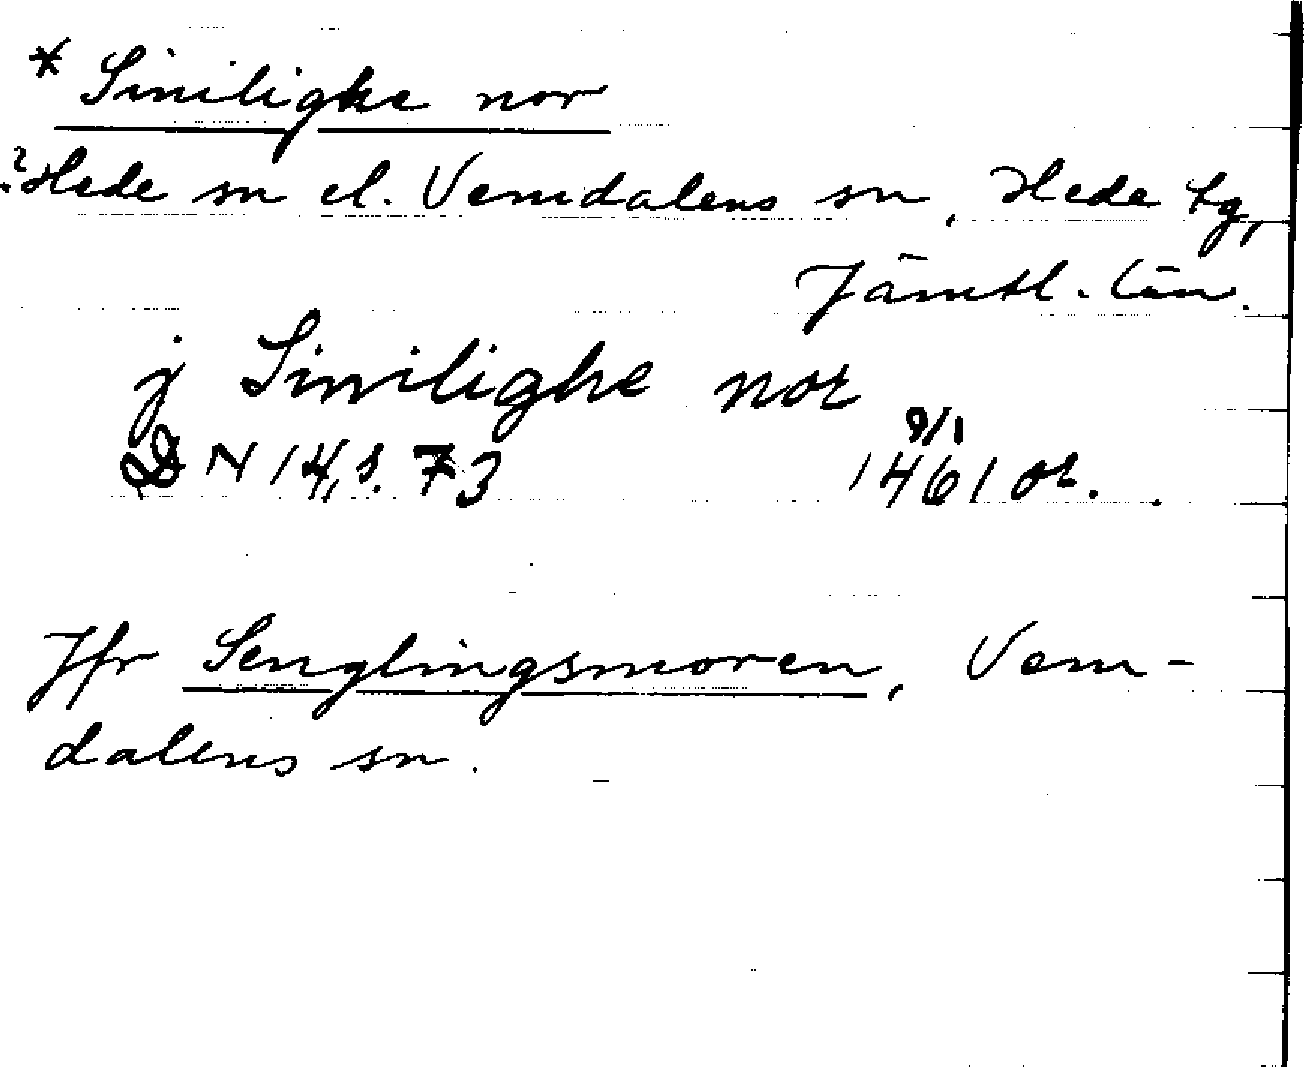 * Sinilighe nor
? Hede sn el. Vemdalens sn, Hede tg,
Jämtl. län.
j Sinilighe nor
DN 14, s. 73 9/1 1461 or.
Jfr Senglingsmoren, Vem-
dalens sn.